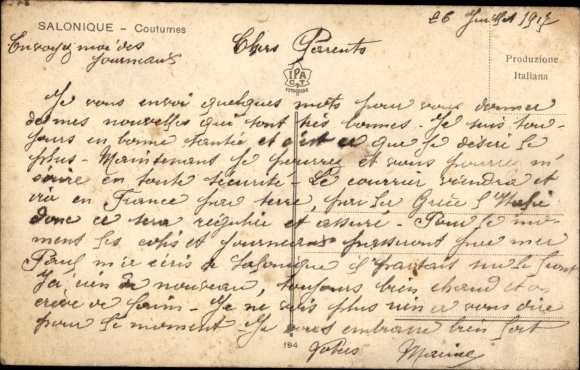 SALONIQUE – Coutumes
26 Juillet 1917
Envoyez moi des
journeaux
Chers Parents
Produzione
Italiana
IPA
CT
Je vous envoi quelques mots pour vous donner
de mes nouvelles qui sont très bonnes - Je suis tou-
jours en bonne santée et c'est ce que je désire le
plus - Maintenant je pourrez et vous pourrez m'
écrire en toute sécurité - Le courrier viendra et
ira en France par terre, par la Grèce l'Italie
donc ce sera régulié et assuré - Pour le mo-
ment les colis et journeaux passeront par mer
Paul m'a écris de Salonique il partait sur le front
J'ai rien de nouveau, toujours bien chaud et on
crève de faim - Je ne vois plus rien a vous dire
pour le moment - Je vous embrasse bien fort
194